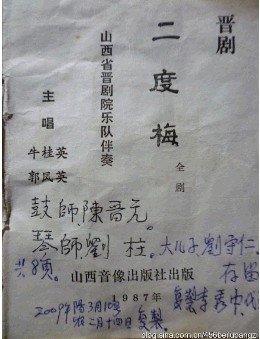 晋剧
二度梅
全剧
山西省晋剧院乐队伴奏
主唱
牛桂英
郭凤英
鼓師陳晋元。
琴師劉柱。大儿子劉守仁
存留
共8頁。
山西音像出版社出版
1987年
2009年阳3月10号
阴二月十四日复製